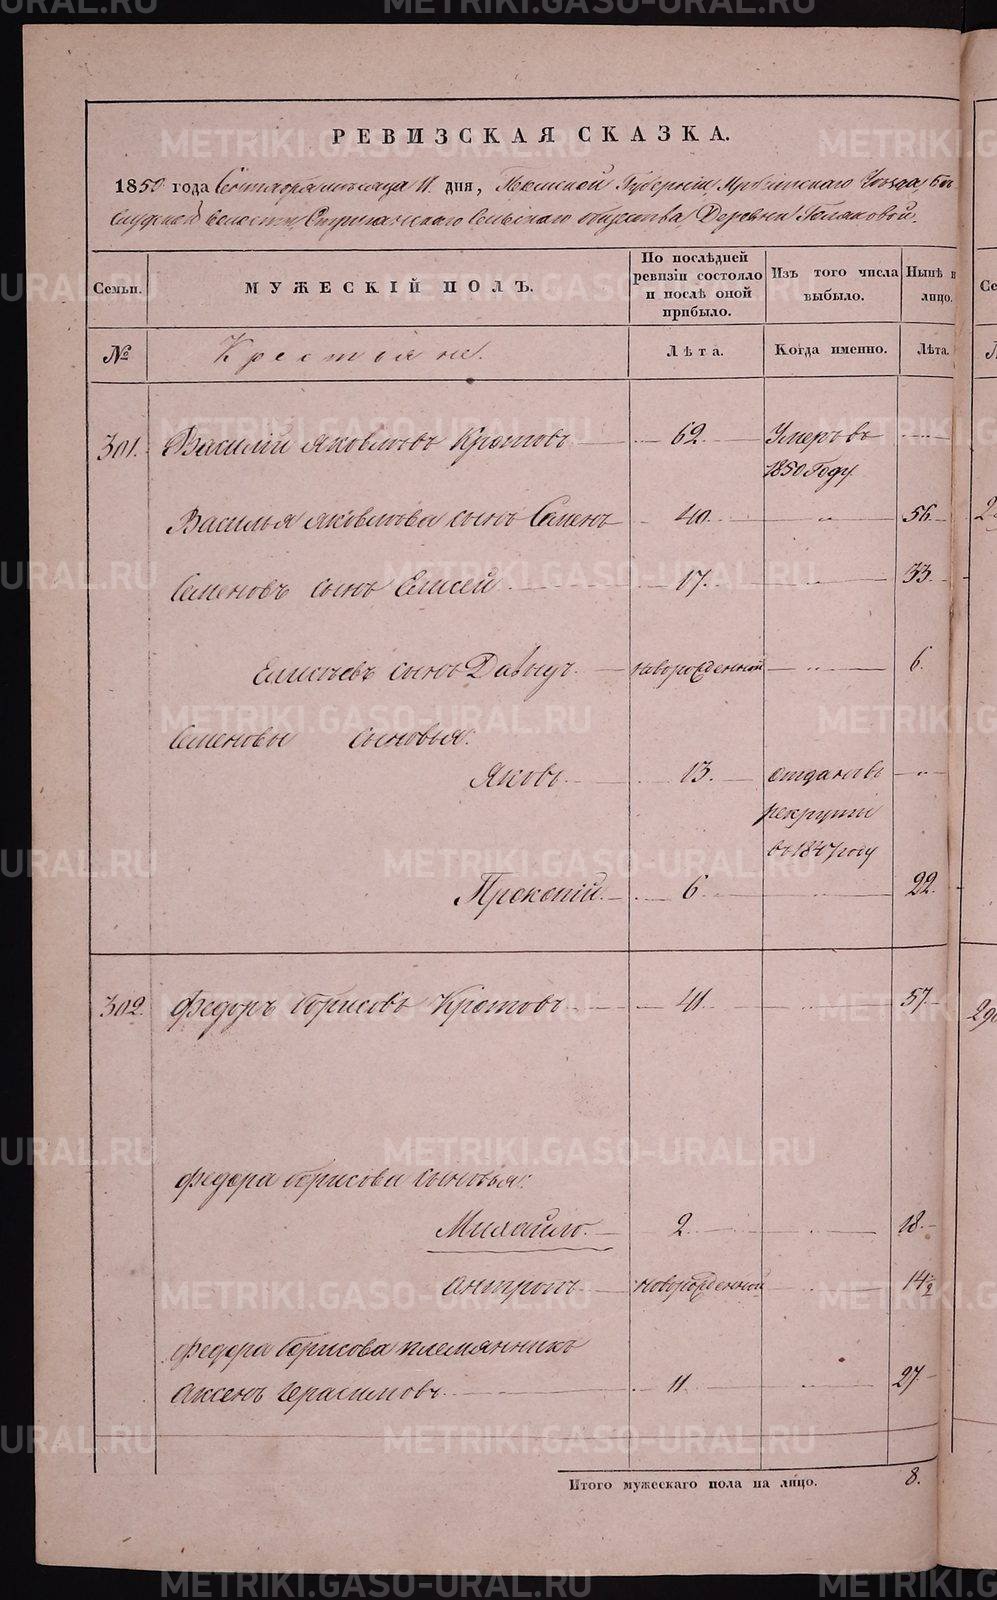 РЕВИЗСКАЯ СКАЗКА.
1850 года Сентября месяца 11. дня, Пермской Губернiи, Ирбитскаго Уѣзда, Бѣ-
слудской волости, Стриганскаго Сельскаго общества, Деревни
Семьи.
МУЖЕСКIЙ ПОЛЪ.
По послѣдней ревизiи состояло и послѣ оной прибыло.
Изъ того числа выбыло.
Нынѣ на лицо.
№
Крестьяне.
Лѣта.
Когда именно.
Лѣта.
301. Василiй Яковлевъ Кротовъ 62. Умеръ въ
1850 Году
Василья Яковлева сынъ Семенъ 40. 56.
Семеновъ сынъ Елисей 17. 33.
Елисѣевъ сынъ Давыдъ новорожденной 6.
Семеновы сыновья:
Яковъ 13. отданъ въ
рекруты
въ 1847 году
Прокопiй 6 22.
302. Федоръ Борисовъ Кротовъ 41. 57.
Федора Борисова сыновья:
Михайло 2. 18.
Антропъ новорожденной 14½
Федора Борисова племянникъ
Аксенъ Герасимовъ 11. 27.
Итого мужескаго пола на лицо. 8.
METRIKI.GASO-URAL.RU